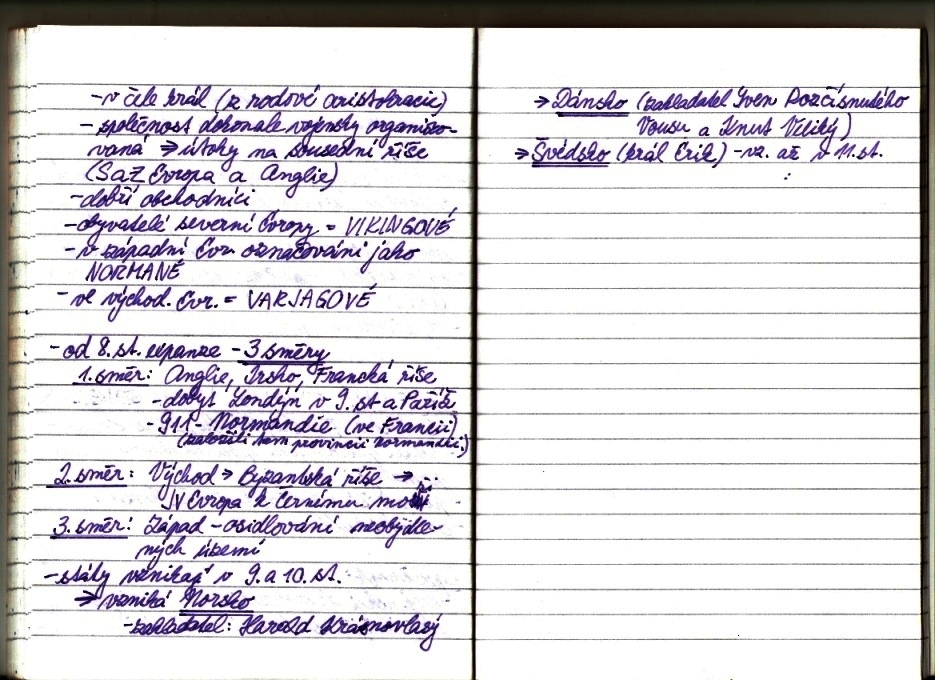 - v čele král (z rodové aristokracie)
- společnost dokonale vojensky organizo-
vaná ⇒ útoky na sousední říše
(S a Z Evropa a Anglie)
- dobří obchodníci
- obyvatelé severní Evropy = VIKINGOVÉ
- v západní Evr. označováni jako
NORMANÉ
- ve východ. Evr. = VARJAGOVÉ
- od 8. st. expanze - 3 směry
1. směr: Anglie, Irsko, Francká říše
- dobyt Londýn v 9. st a Paříž
- 911 - Normandie (ve Francii)
(založili tam provincii Normandii.)
2. směr: Východ → Byzantská říše →
JV Evropa k Černému moři
3. směr: Západ - osidlování neobydle-
ných území
- státy vznikají v 9. a 10. st.
→ vzniká Norsko
- zakladatel: Harold Krásnovlasý
→ Dánsko (zakladatel Sven Rozčísnutého
Vousu a Knut Veliký)
→ Švédsko (král Erik) - vz. až v 11. st.